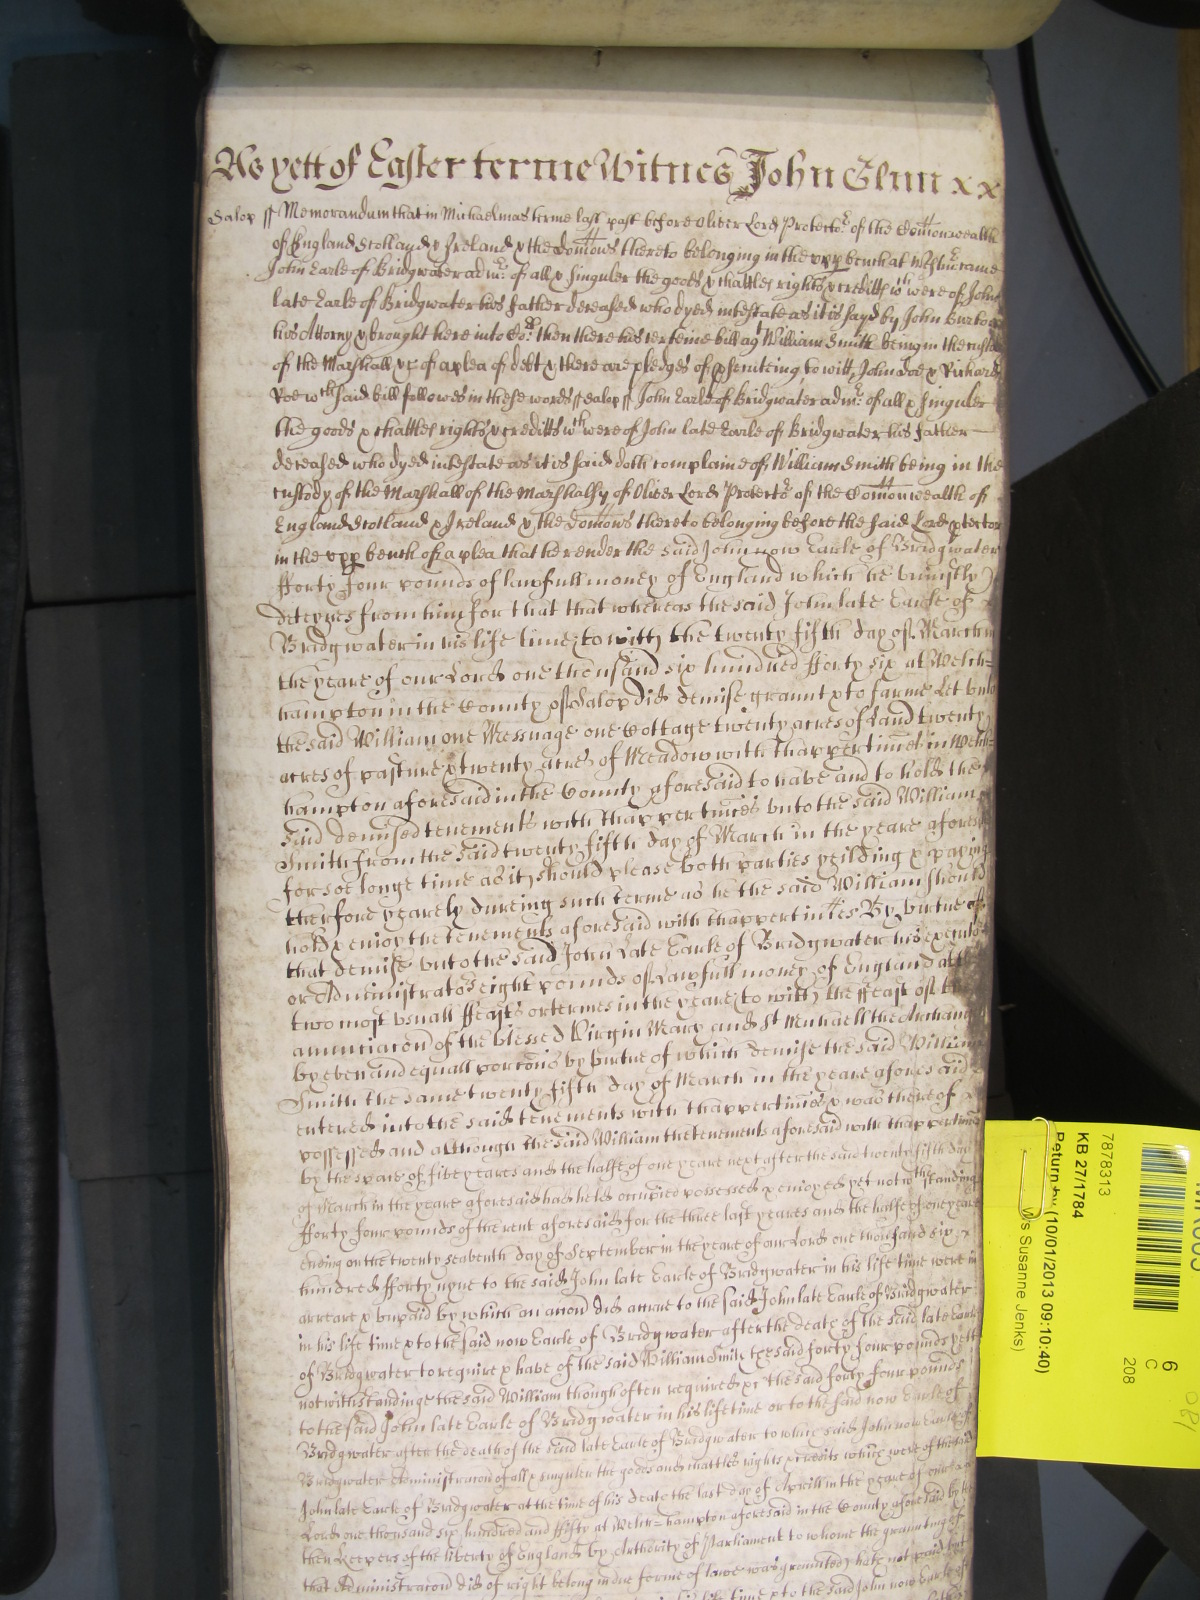 As yett of Easter terme Witnes John Glynn x x
Salop ss Memorandum that in Michaelmas terme last past before Oliver Lord Protector of the Comonwealth
of England Scotland & Ireland & the Domīons thereto belonging in the upp bench at Westmr came
John Earle of Bridgwater admr of all & singuler the goods & chattles rights & creditts wch were of John
late Earle of Bridgwater his father deceased who dyed intestate as it is sayd by John
his Attorny & brought here into Cort then there his certeine bill agt William Smith being in the custody
of the Marshall &c of a plea of debt & there are pledges of psecuteing to witt John Doe & Richard
Roe wch said bill followes in these words ss Salop ss John Earle of Bridgwater admr of all & singuler
the goods & chattles rights & creditts wch were of John late Earle of Bridgwater his father
deceased who dyed intestate as it is said doth complaine of William Smith being in the
custody of the Marshall of the Marshalsy of Oliver Lord Protectr of the Comonwealth of
England Scotland & Ireland & the Domīons thereto belonging before the said Lord ptector
in the upp bench of a plea that he render the said John now Earle of Bridgwater
fforty four pounds of lawfull money of England which he uniustly
deteynes from him for that that whereas the said John late Earle of
Bridgwater in his life time (to witt) the twenty fifth day of March in
the yeare of our Lord one thousand six hundred fforty six at Welch=
hampton in the County of Salop did demise graunt & to farme let unto
the said William one Messuage one Cottage twenty acres of Land twenty
acres of pasture & twenty acres of Meadow with thappertinnces in Welch=
hampton aforesaid in the County aforesaid to have and to hold the
said demised tenements with thappertinnces unto the said William
Smith from the said twenty fifth day of March in the yeare aforesaid
for soe longe time as it should please both parties yeilding & paying
therfore yearely dureing such terme as he the said William should
hold & enioy the tenements aforesaid with thappertinnces By virtue of
that demise unto the said John Late Earle of Bridgwater his executors
or Administrators eight pounds of Lawfull money of England att
two most usuall ffeasts or termes in the yeare (to witt) the ffeast of the
anunciacon of the blessed Virgin Mary and St Michaell the Archangell
by even and equall portions by virtue of which demise the said William
Smith the same twenty fifth day of March in the yeare aforesaid
entered into the said tenements with thappertinnces & was thereof
possessed and although the said William the tenements aforesaid with thappertinnces
by the space of five yeares and the halfe of one yeare next after the said twenty fifth day
of March in the yeare aforesaid had held occupied possessed & enioyed yet notwthstanding
fforty four pounds of the rent aforesaid for the three last yeares and the halfe of one yeare
ending on the twenty seaventh day of September in the yeare of our Lord one thousand six
hundred fforty nyne to the said John late Earle of Bridgwater in his life time were in
arreare & unpaid by which an accon did accrue to the said John late Earle of Bridgwater
in his life time & to the said now Earle of Bridgwater after the death of the said late Earle
of Bridgwater to require & have of the said William Smith the said forty four pounds yett
notwithstandinge the said William though often required &c the said forty four pounds
to the said John late Earle of Bridgwater in his life time or to the said now Earle of
Bridgwater after the death of the said late Earle of Bridgwater to which said John now Earle of
Bridgwater Administracon of all & singuler the goods and chattles rights & credits which were of the said
John late Earle of Bridgwater at the time of his death the last day of Aprill in the yeare of our
Lord one thousand six hundred and fifty at Welch=hampton aforesaid in the County aforesaid by the
then Keepers of the liberty of England by Authority of Parliament to whome the graunting of
that Administracon did of right belong in due forme of lawe was graunted hath not paid but
life time & to the said John now Earle of
7878313
KB 27/1784
Return by (10/01/2013 09:10:40)
Susanne Jenks)
6
C
208